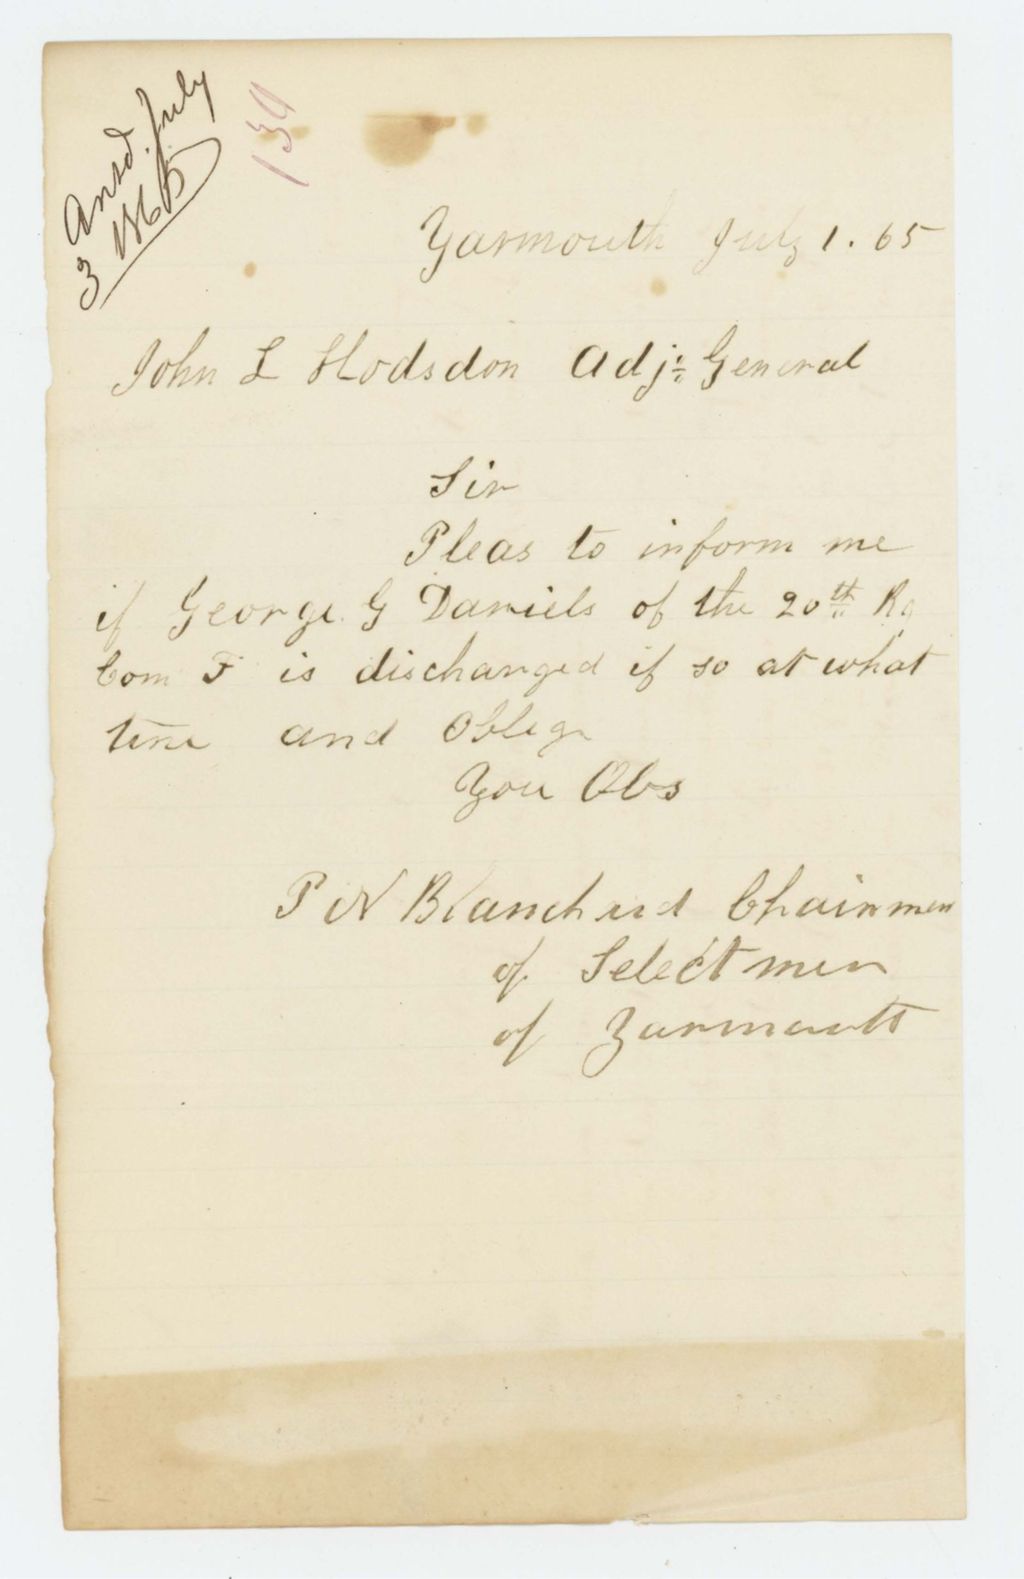 Ansd. July
3 1865
139
Yarmouth July 1. 65
John L Hodsdon Adjt General
Sir
Pleas to inform me
if George G Daniels of the 20th Rg
Com F is discharged if so at what
time and Oblege
You Obs
P N Blanchard Chairmen
of Select men
of Yarmouth